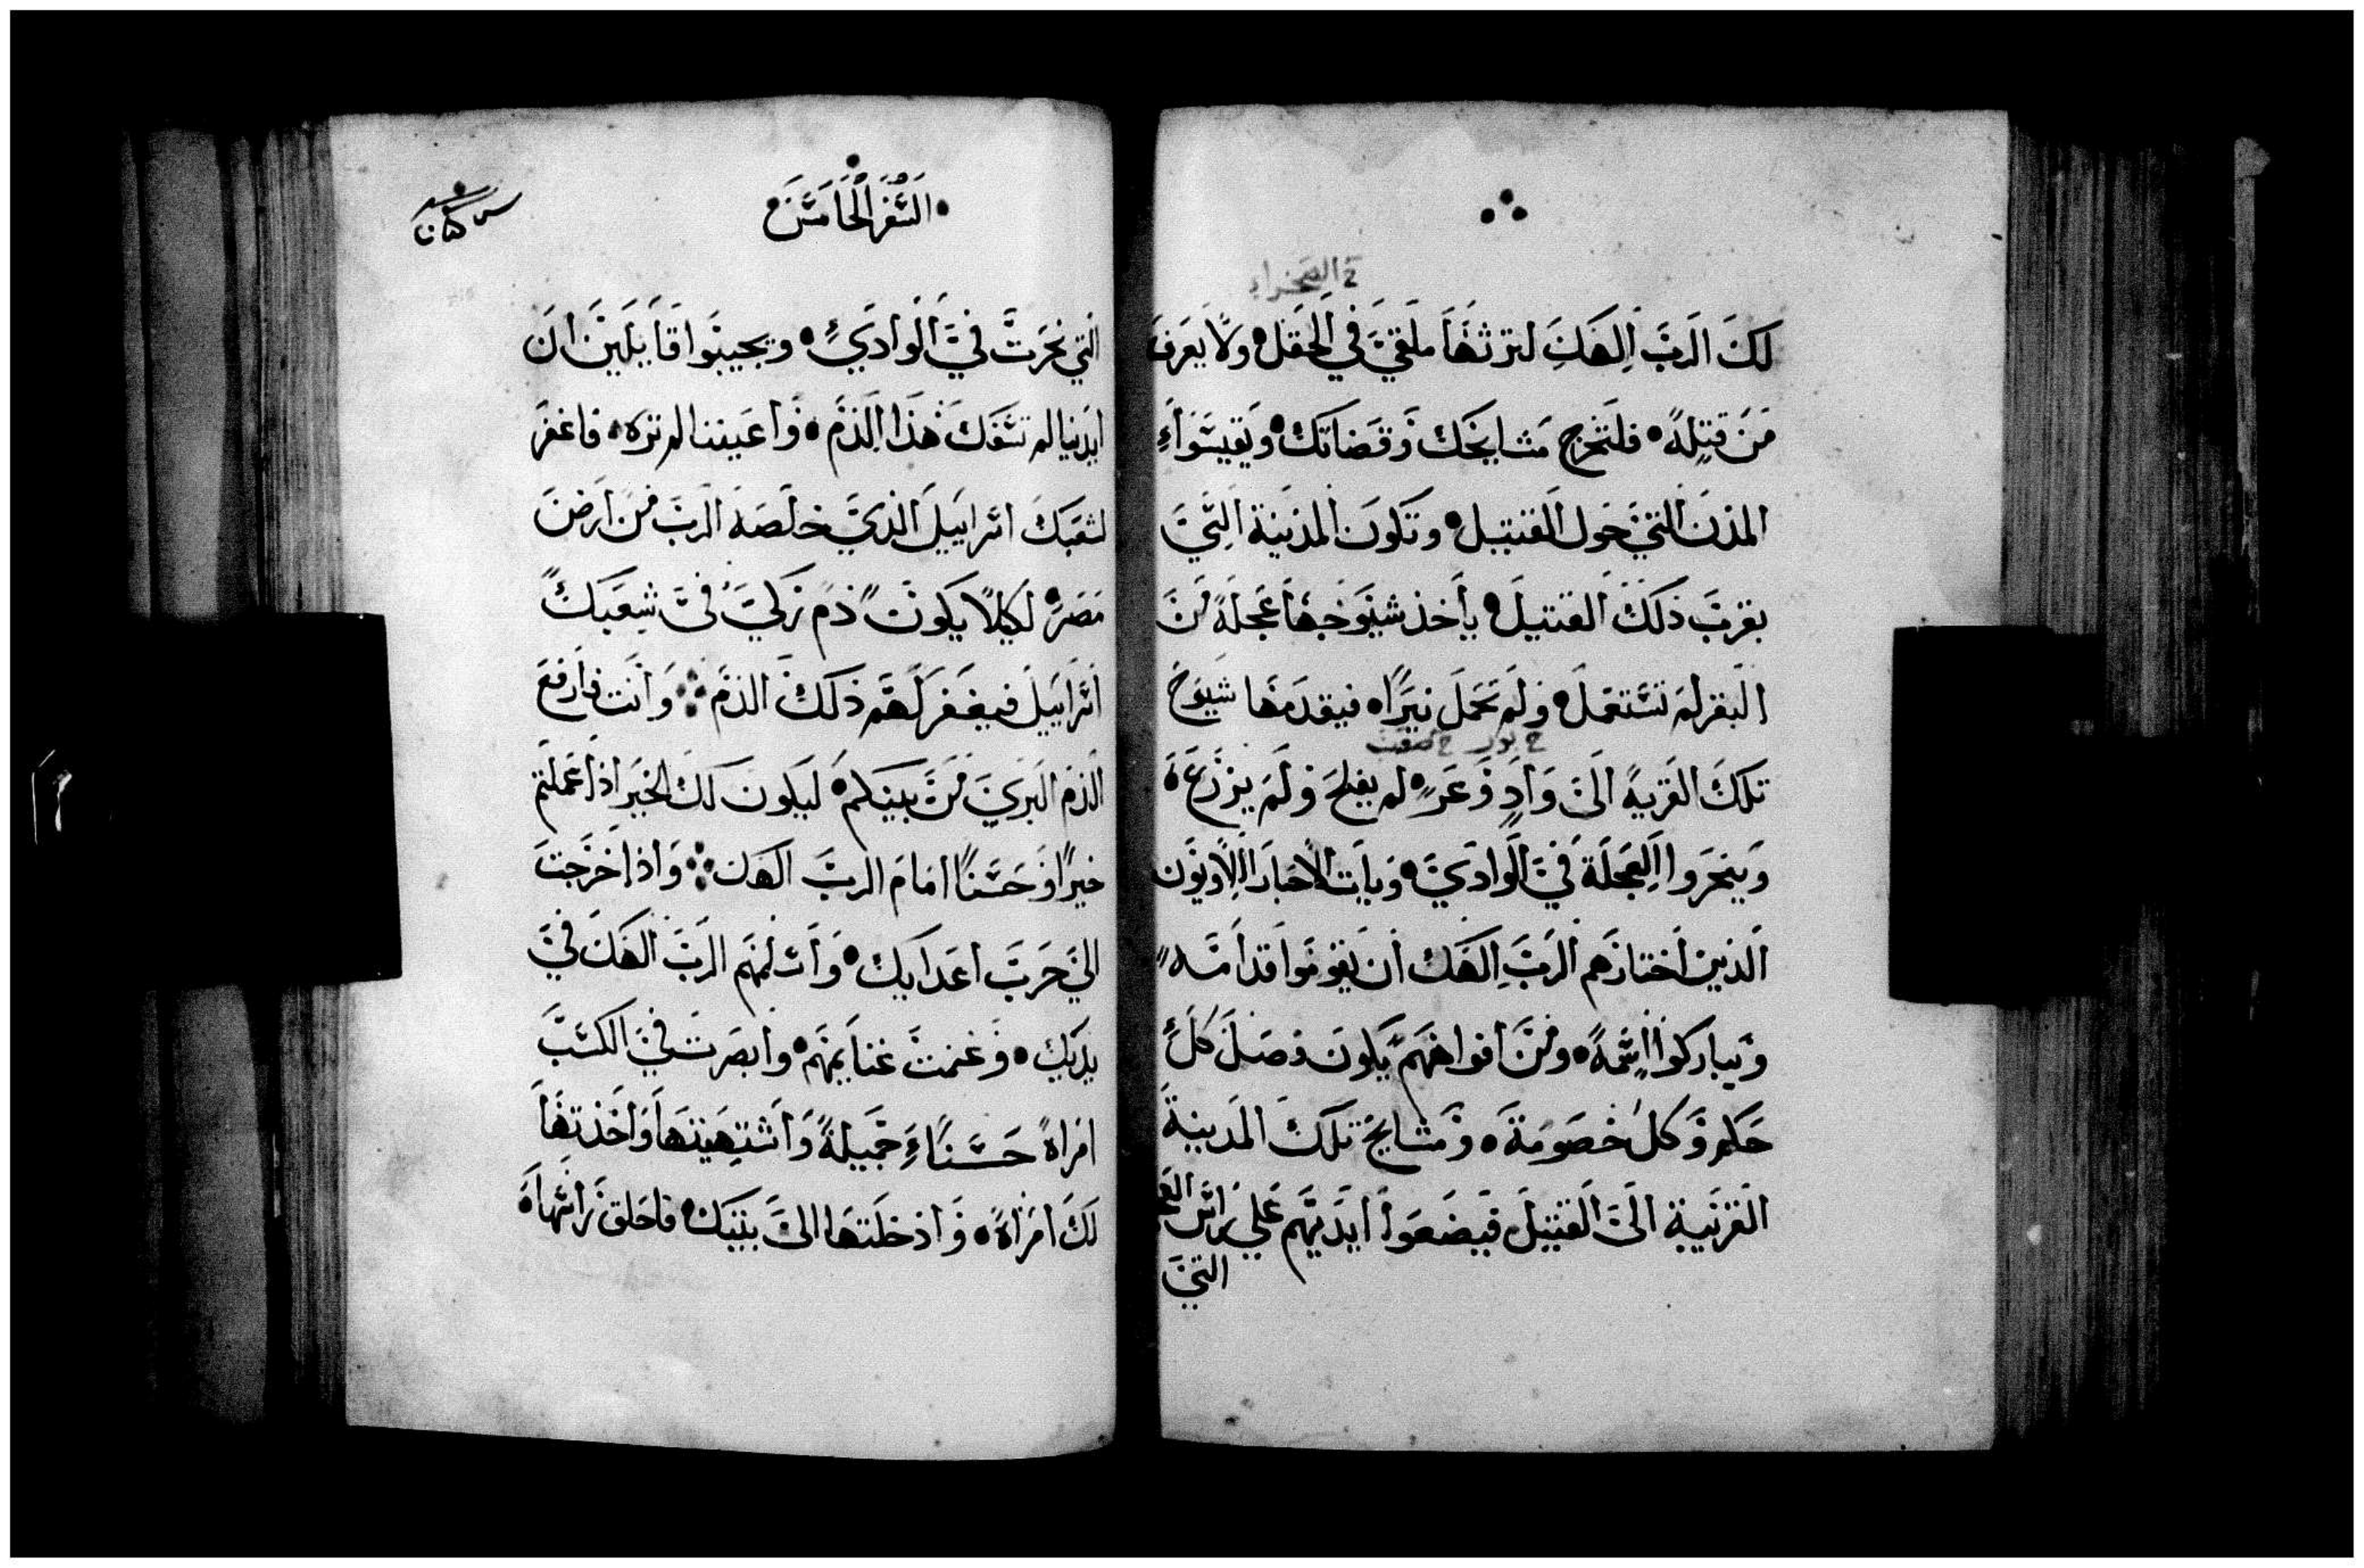 خ الصحراء
لك الرب الهك لترثها ملقي في الحقل ولا يعرف
من قتله فلتخرج مشايخك وقضاتك ويقيسوا
المدن التي حول القتيل وتكون المدينة التي
بقرب ذلك القتيل ياخذ شيوخها عجلة من
البقر لم تستعمل ولم تحمل نيرا فيقدمها شيوخ
خ بور خ صعب
تلك القرية الي واد وعر لم يفلح ولم يزرع
وينحروا العجلة في الوادي ويات الاحبار اللاويون
الذين اختارهم الرب الهك ان يقوموا قدامه
ويباركوا اسمه ومن افواههم يكون فصل كل
حكم وكل خصومة ومشايخ تلك المدينة
القريبة الي القتيل فيضعوا ايديهم علي راس
التي
السفر الخامس
التي نحرت في الوادي ويجيبوا قايلين ان
ايدينا لم تسفك هذا الدم واعيننا لم تره فاغفر
لشعبك اسراييل الذي خلصه الرب من ارض
مصر لكيلا يكون دم زكي في شعبك
اسراييل فيغفر لهم ذلك الدم وانت فارفع
الدم البري من بينكم ليكون لك الخير اذا عملتم
خيرا وحسنا امام الرب الهك واذا خرجت
الي حرب اعدايك واسلمهم الرب الهك في
يديك وغنمت غنايمهم وابصرت في الكسب
امراة حسناء جميلة واشتهيتها واخذتها
لك امراة وادخلتها الي بيتك فاحلق راسها